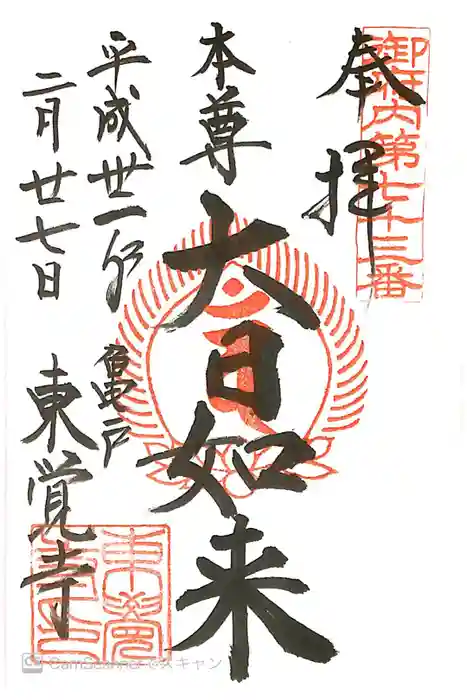 御府内第七十三番
奉拝
本尊
大日如来
平成丗一年
二月廿七日
亀戸
東覚寺
東覚寺之印
CamScannerでスキャン